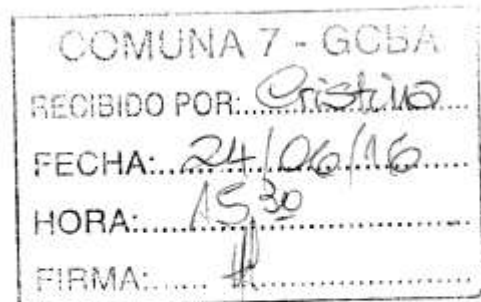 COMUNA 7 - GCBA
RECIBIDO POR: Cristina
FECHA: 24/06/16
HORA: 15,30
FIRMA: